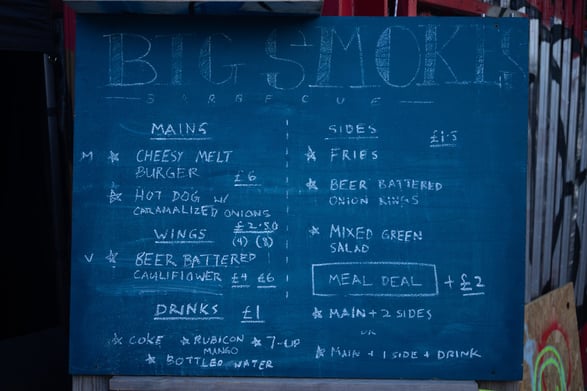 BIG SMOKE
BARBECUE
MAINS
M CHEESY MELT
BURGER £6
HOT DOG W/
CARAMALIZED ONIONS
£2.50
WINGS (4) (8)
V BEER BATTERED
CAULIFLOWER £4 £6
DRINKS £1
COKE RUBICON 7-UP
MANGO
BOTTLED WATER
SIDES £1.5
FRIES
BEER BATTERED
ONION RINGS
MIXED GREEN
SALAD
MEAL DEAL + £2
MAIN + 2 SIDES
OR
MAIN + 1 SIDE + DRINK